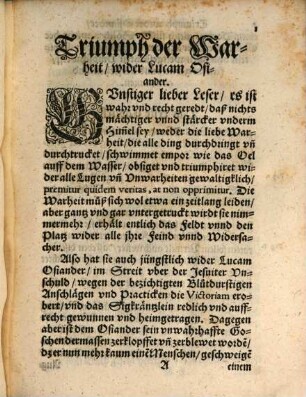 Triumph der War-
heit / wider Lucam Osi-
ander.
GVnstiger lieber Leser / es ist
wahr vnd recht geredt / daß nichts
mächtiger vnnd stärcker vnderm
Him̃el sey / weder die liebe War-
heit / die alle ding durchdringt vñ
durchtrucket / schwimmet empor wie das Oel
auff dem Wasser / obsiget vnd triumphiret wi-
der alle Lugen vñ Vnwarheiten gewaltigklich /
premitur quidem veritas, at non opprimitur. Die
Warheit můß sich wol etwa ein zeitlang leiden /
aber gantz vnd gar vntergetruckt wirdt sie nim-
mermehr / erhält entlich das Feldt vnnd den
Platz wider alle jhre Feind vnnd Widersa-
cher.
Also hat sie auch jüngstlich wider Lucam
Osiander / im Streit vber der Jesuiter Vn-
schuld / wegen der bezichtigten Blůtdurstigen
Anschlägen vnd Practicken die Victoriam ero-
bert / vnd das Sigkräntzlein redlich vnd auff-
recht gewunnen vnd heimgetragen. Dagegen
aber ist dem Osiander sein vnwahrhaffte Go-
schen dermassen zerklopffet vñ zerblewet wordẽ /
dz er nun mehr kaum einẽ Menschen / geschweigẽ
A einem